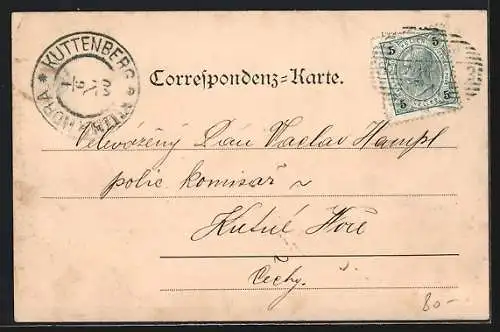 KUTTENBERG * KUTNÁ HORA *
Correspondenz-Karte.
5 5
5 5
Velevážený Pán Vaclav Hampl
polic. komisař v
Kutné Hoře
2
Čechy.
80-